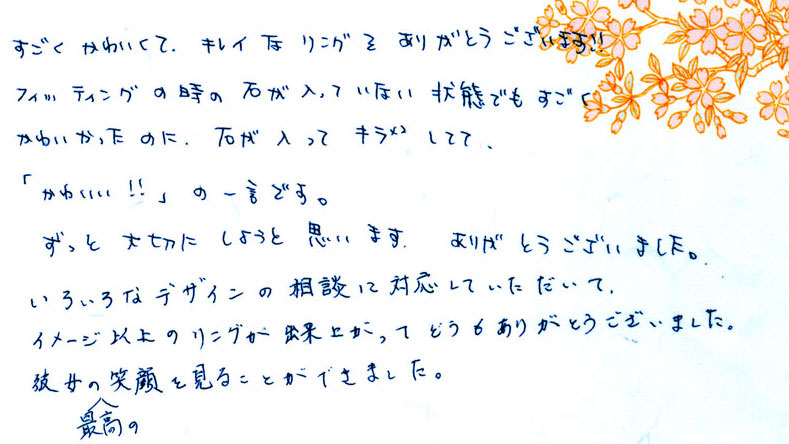 すごくかわいくて、キレイなリングをありがとうございます!!
フィッティングの時の石が入っていない状態でもすごく
かわいかったのに、石が入ってキラメキしてて、
「かわいい!!」の一言です。
ずっと大切にしようと思います。ありがとうございました。
いろいろなデザインの相談に対応していただいて、
イメージ以上のリングが出来上がってどうもありがとうございました。
彼女の最高の笑顔を見ることができました。